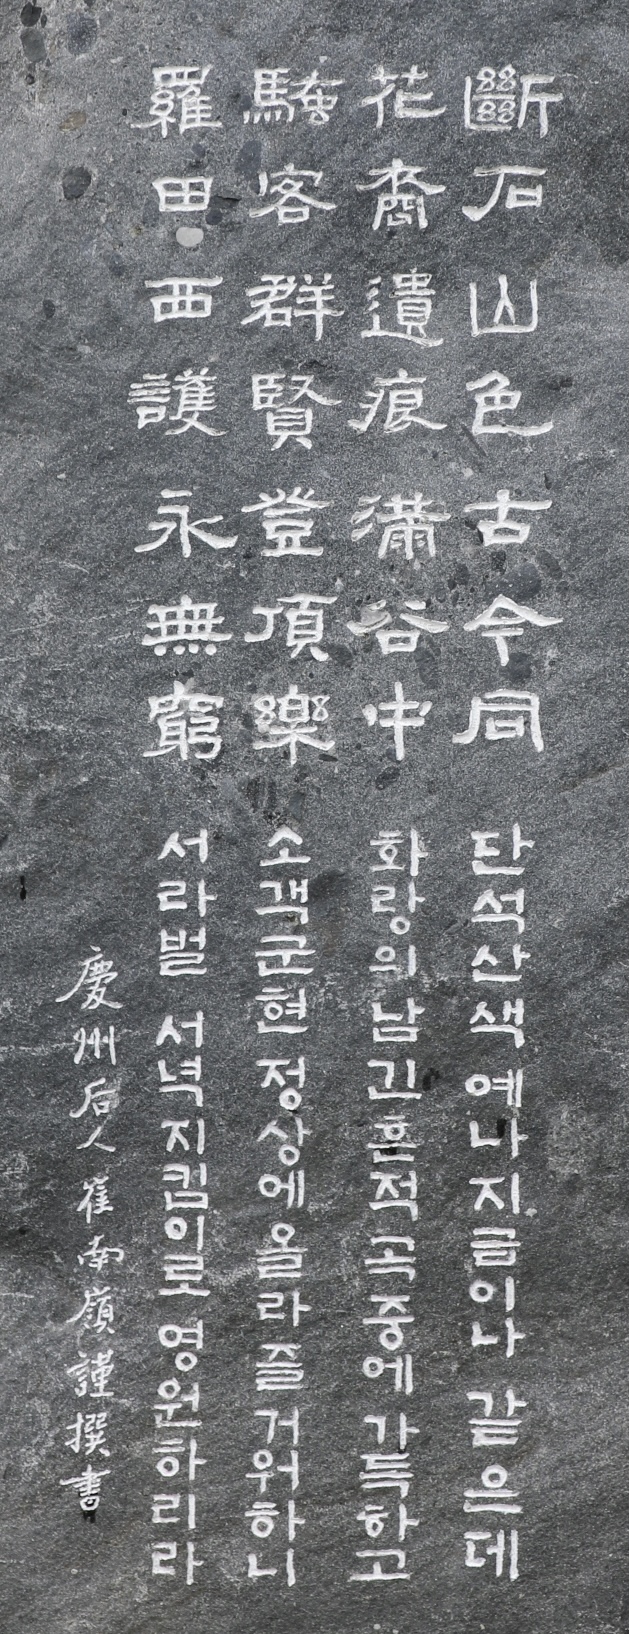 斷石山色古今同
단석산색 예나 지금이나 같은데
花裔遺痕滿谷中
화랑의 남긴 흔적 곡중에 가득하고
騷客群賢登頂樂
소객군현 정상에 올라 즐거워하니
羅田西護永無窮
서라벌 서녘 지킴이로 영원하리라
慶州后人 崔南嶺 謹撰書